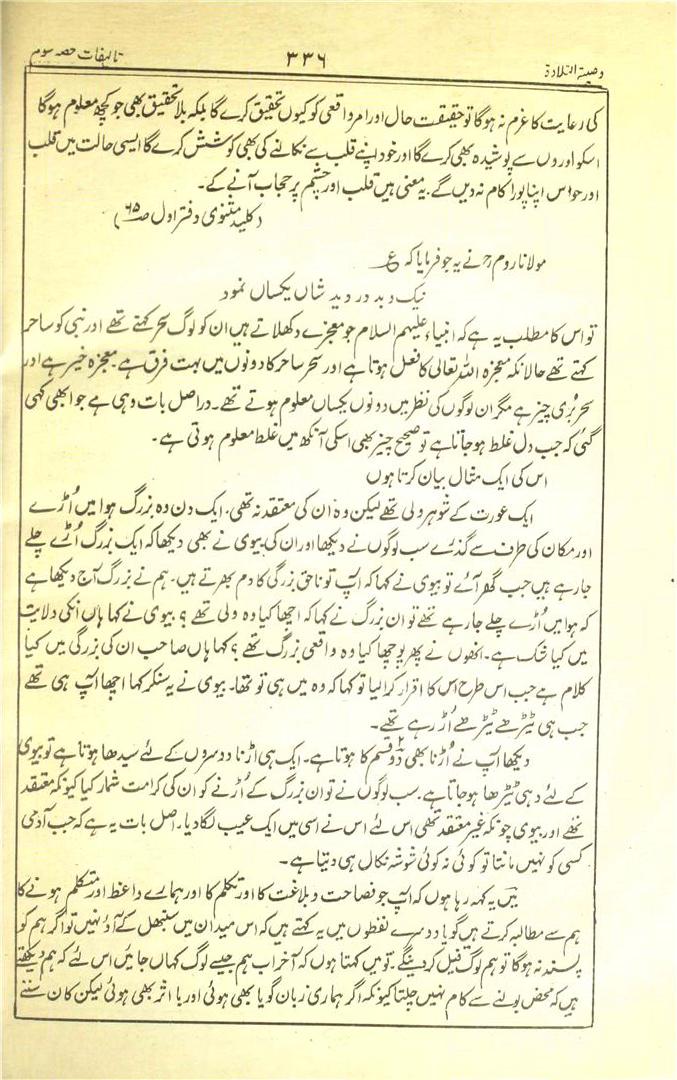 وصیۃ التلاوۃ
۳۳۶
تالیفات حصہ سوم
کی رعایت کا عزم نہ ہوگا تو حقیقت حال اور امر واقعی کو کیوں تحقیق کرے گا بلکہ بلا تحقیق بھی جو کچھ معلوم ہوگا
اسکو اوروں سے پوشیدہ بھی کرے گا اور خود اپنے قلب سے نکالنے کی بھی کوشش کرے گا ایسی حالت میں قلب
اور حواس اپنا پورا کام نہ دیں گے۔ یہ معنی ہیں قلب اور چشم پر حجاب آنے کے۔
(کلید مثنوی دفتر اول ص۶۵)
مولانا روم رح نے یہ جو فرمایا کہ ع
نیک و بد در دید شاں یکساں نمود
تو اس کا مطلب یہ ہے کہ انبیاء علیہم السلام جو معجزے دکھلاتے ہیں ان کو لوگ سحر کہتے تھے اور نبی کو ساحر
کہتے تھے حالانکہ معجزہ اللہ تعالیٰ کا فعل ہوتا ہے اور سحر ساحر کا دونوں میں بہت فرق ہے۔ معجزہ خیر ہے اور
سحر بُری چیز ہے مگر ان لوگوں کی نظر میں دونوں یکساں معلوم ہوتے تھے۔ دراصل بات وہی ہے جو ابھی کہی
گئی کہ جب دل غلط ہوجاتا ہے تو صحیح چیز بھی اسکی آنکھ میں غلط معلوم ہوتی ہے۔
اس کی ایک مثال بیان کرتا ہوں
ایک عورت کے شوہر ولی تھے لیکن وہ ان کی معتقد نہ تھی۔ ایک دن وہ بزرگ ہوا میں اُڑے
اور مکان کی طرف سے گذرے سب لوگوں نے دیکھا اور ان کی بیوی نے بھی دیکھا کہ ایک بزرگ اُڑے چلے
جارہے ہیں جب گھر آئے تو بیوی نے کہا کہ آپ تو ناحق بزرگی کا دم بھرتے ہیں۔ ہم نے بزرگ آج دیکھا ہے
کہ ہوا میں اُڑے چلے جارہے تھے تو ان بزرگ نے کہا کہ اچھا کیا وہ ولی تھے؟ بیوی نے کہا ہاں انکی ولایت
میں کیا شک ہے۔ انھوں نے پھر پوچھا کیا وہ واقعی بزرگ تھے؟ کہا ہاں صاحب ان کی بزرگی میں کیا
کلام ہے جب اس طرح اس کا اقرار کرالیا تو کہا کہ وہ میں ہی تو تھا۔ بیوی نے یہ سنکر کہا اچھا آپ ہی تھے
جب ہی ٹیڑھے ٹیڑھے اُڑ رہے تھے۔
دیکھا آپ نے اُڑنا بھی دو قسم کا ہوتا ہے۔ ایک ہی اڑنا دوسروں کے لئے سیدھا ہوتا ہے تو بیوی
کے لئے وہی ٹیڑھا ہوجاتا ہے۔ سب لوگوں نے تو ان بزرگ کے اُڑنے کو ان کی کرامت شمار کیا کیونکہ معتقد
تھے اور بیوی چونکہ غیر معتقد تھی اس لئے اس نے اسی میں ایک عیب لگا دیا۔ اصل بات یہ ہے کہ جب آدمی
کسی کو نہیں مانتا تو کوئی نہ کوئی شوشہ نکال ہی دیتا ہے۔
میں یہ کہہ رہا ہوں کہ آپ جو فصاحت و بلاغت کا اور تکلم کا اور ہمارے واعظ اور متکلم ہونے کا
ہم سے مطالبہ کرتے ہیں گویا دوسرے لفظوں میں یہ کہتے ہیں کہ اس میدان میں سنبھل کے آؤ نہیں تو اگر ہم کو
پسند نہ ہوگا تو ہم لوگ فیل کردینگے۔ تو میں کہتا ہوں کہ آخر اب ہم جیسے لوگ کہاں جائیں اس لئے کہ ہم دیکھتے
ہیں کہ محض بولنے سے کام نہیں چلتا کیونکہ اگر ہماری زبان گویا بھی ہوئی اور با اثر بھی ہوئی لیکن کان سننے